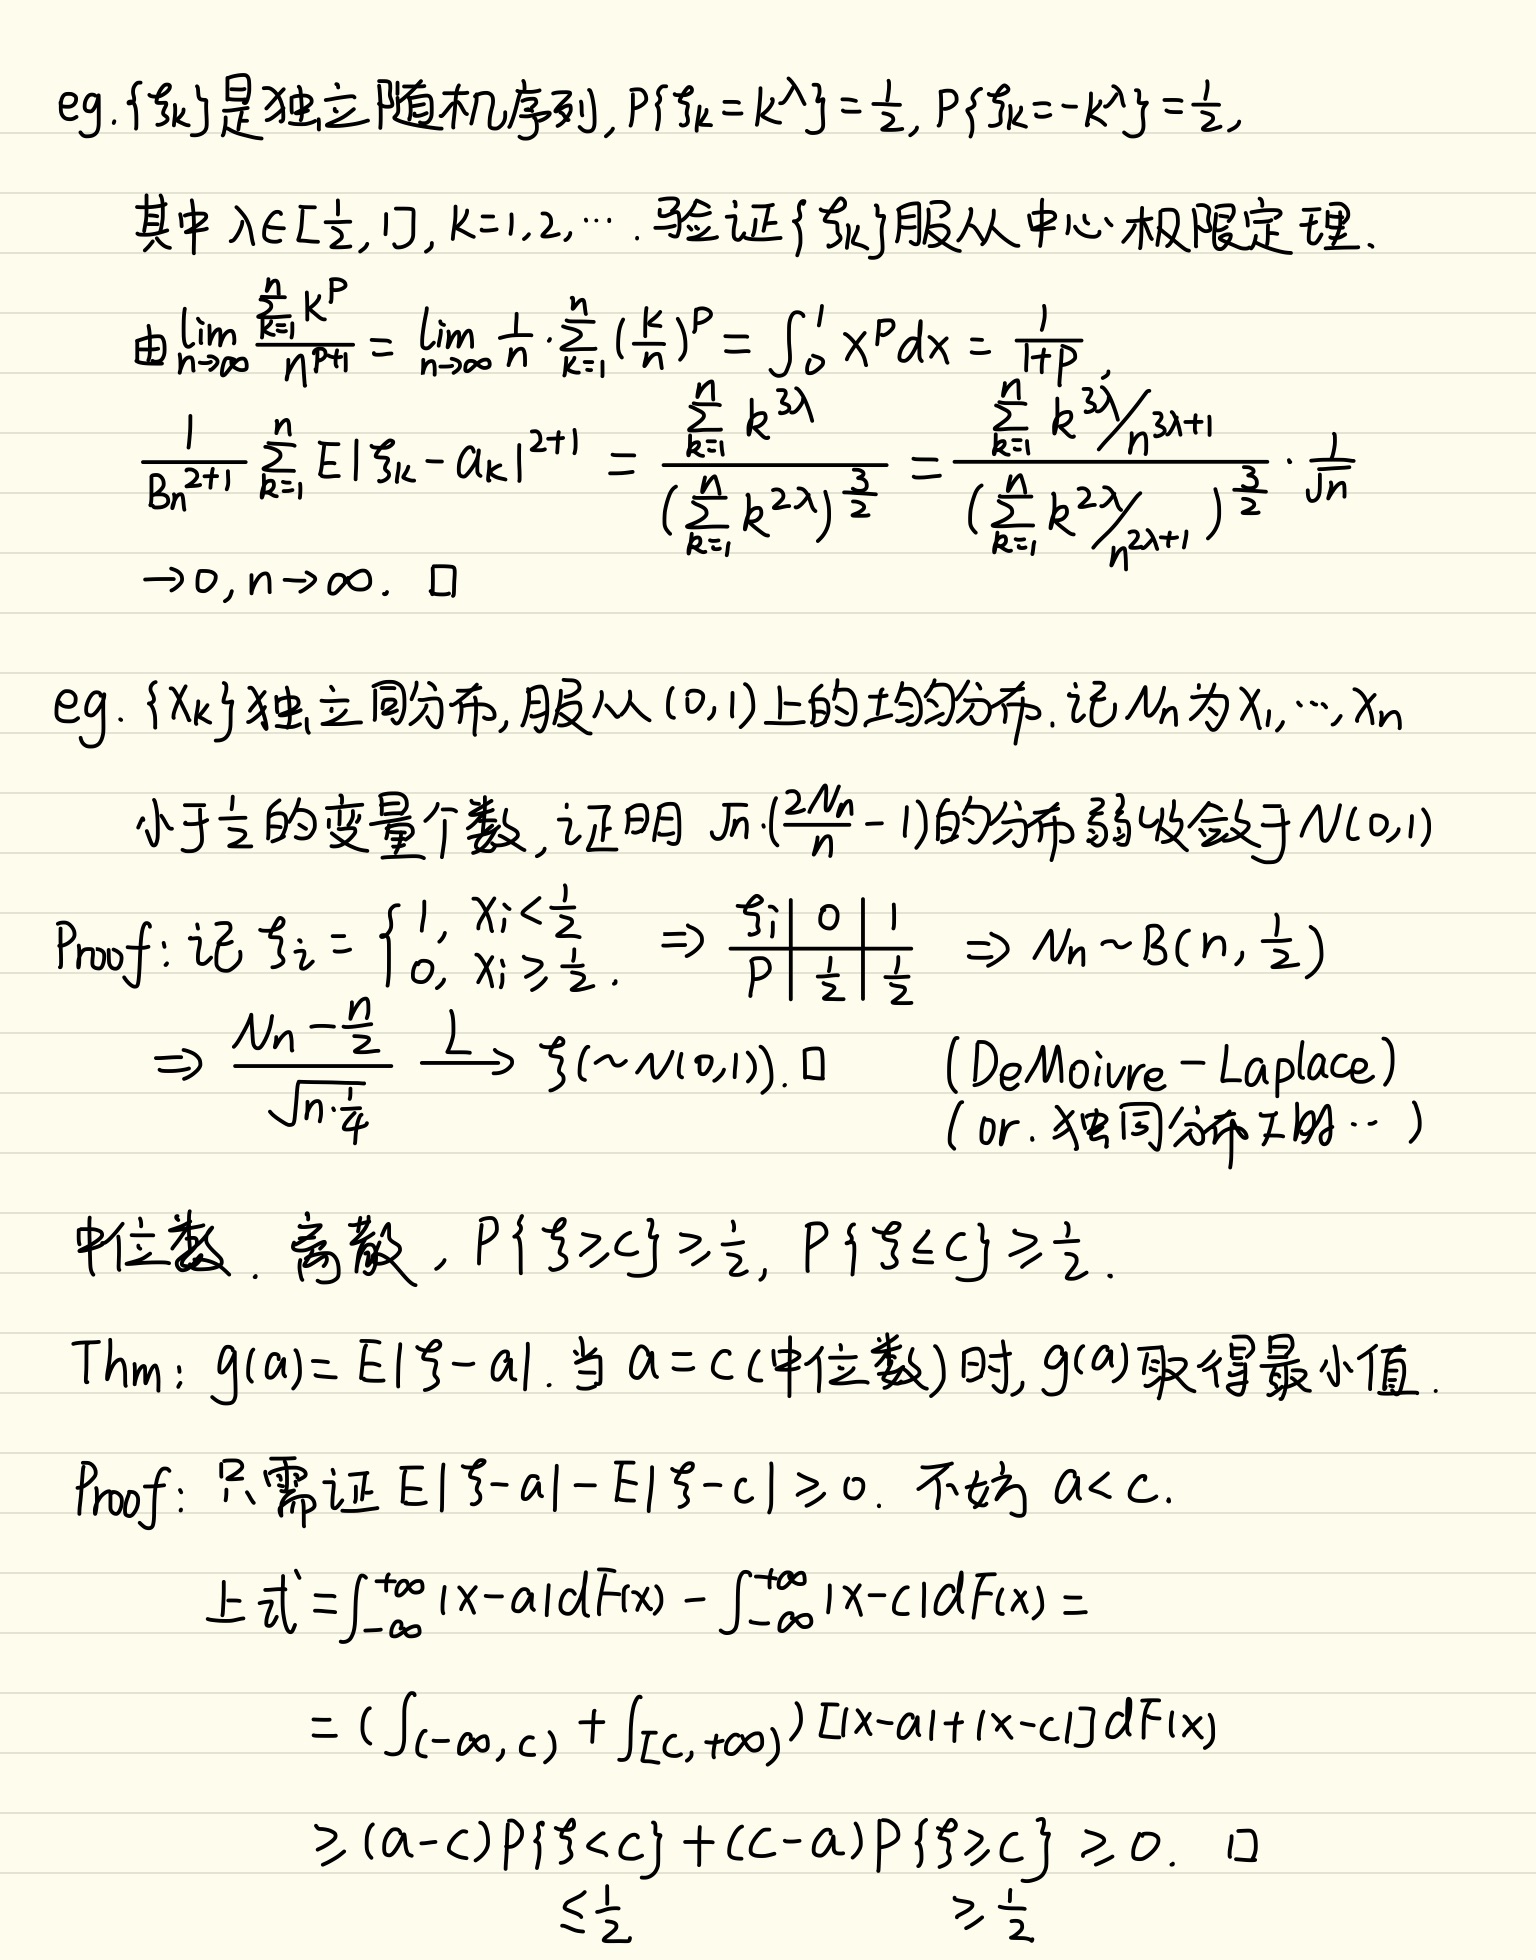 eg. {ξk}是独立随机序列, P{ξk = k^λ} = 1/2, P{ξk = -k^λ} = 1/2,
其中 λ∈[1/2, 1], k=1,2,…. 验证{ξk}服从中心极限定理.
由 lim_{n→∞} (∑_{k=1}^n k^p)/(n^{p+1}) = lim_{n→∞} 1/n · ∑_{k=1}^n (k/n)^p = ∫_0^1 x^p dx = 1/(1+p),
1/(Bn^{2+1}) ∑_{k=1}^n E|ξk - ak|^{2+1} = (∑_{k=1}^n k^{3λ})/((∑_{k=1}^n k^{2λ})^{3/2}) = (∑_{k=1}^n k^{3λ}/n^{3λ+1})/((∑_{k=1}^n k^{2λ}/n^{2λ+1})^{3/2}) · 1/√n
→0, n→∞. □
eg. {Xk}独立同分布, 服从(0,1)上的均匀分布. 记Nn为X1,…,Xn
小于1/2的变量个数, 证明 √n·(2Nn/n - 1)的分布弱收敛于N(0,1)
Proof: 记 ξi = { 1, Xi < 1/2; 0, Xi ≥ 1/2. ⇒ ξi | 0 | 1; P | 1/2 | 1/2 ⇒ Nn ~ B(n, 1/2)
⇒ (Nn - n/2)/√(n·1/4) —L→ ξ(~N(0,1)). □ (DeMoivre-Laplace)
(or. 独同分布工的…)
中位数. 离散, P{ξ≥c} ≥ 1/2, P{ξ≤c} ≥ 1/2.
Thm: g(a) = E|ξ-a|. 当 a = c (中位数)时, g(a)取得最小值.
Proof: 只需证 E|ξ-a| - E|ξ-c| ≥ 0. 不妨 a < c.
上式 = ∫_{-∞}^{+∞} |x-a|dF(x) - ∫_{-∞}^{+∞} |x-c|dF(x) =
= (∫_{(-∞, c)} + ∫_{[c, +∞)}) [|x-a|+|x-c|]dF(x)
≥ (a-c)P{ξ<c} + (c-a)P{ξ≥c} ≥ 0. □
≤1/2 ≥1/2